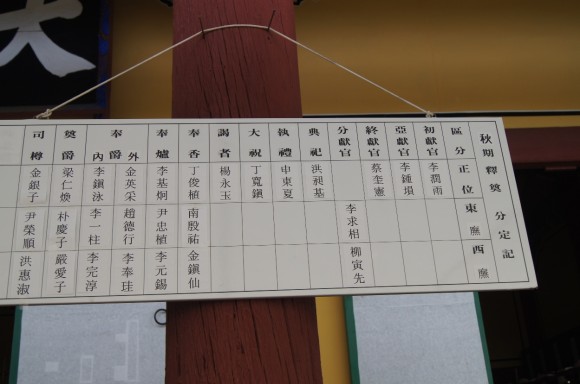 秋期釋奠 分定記
區分 正位 東廡 西廡
初獻官 李潤雨
亞獻官 李鍾塤
終獻官 蔡奎憲
分獻官 李求相 柳寅先
典祀 洪昶基
執禮 申東夏
大祝 丁寬鎭
謁者 楊永玉
奉香 丁俊植 南殷祐 金鎭仙
奉爐 李基炯 尹忠植 李元錫
奉爵
外 金英采 趙德行 李奉珪
內 李鎭泳 李一柱 李完淳
奠爵 梁仁煥 朴慶子 嚴愛子
司樽 金銀子 尹榮順 洪惠淑